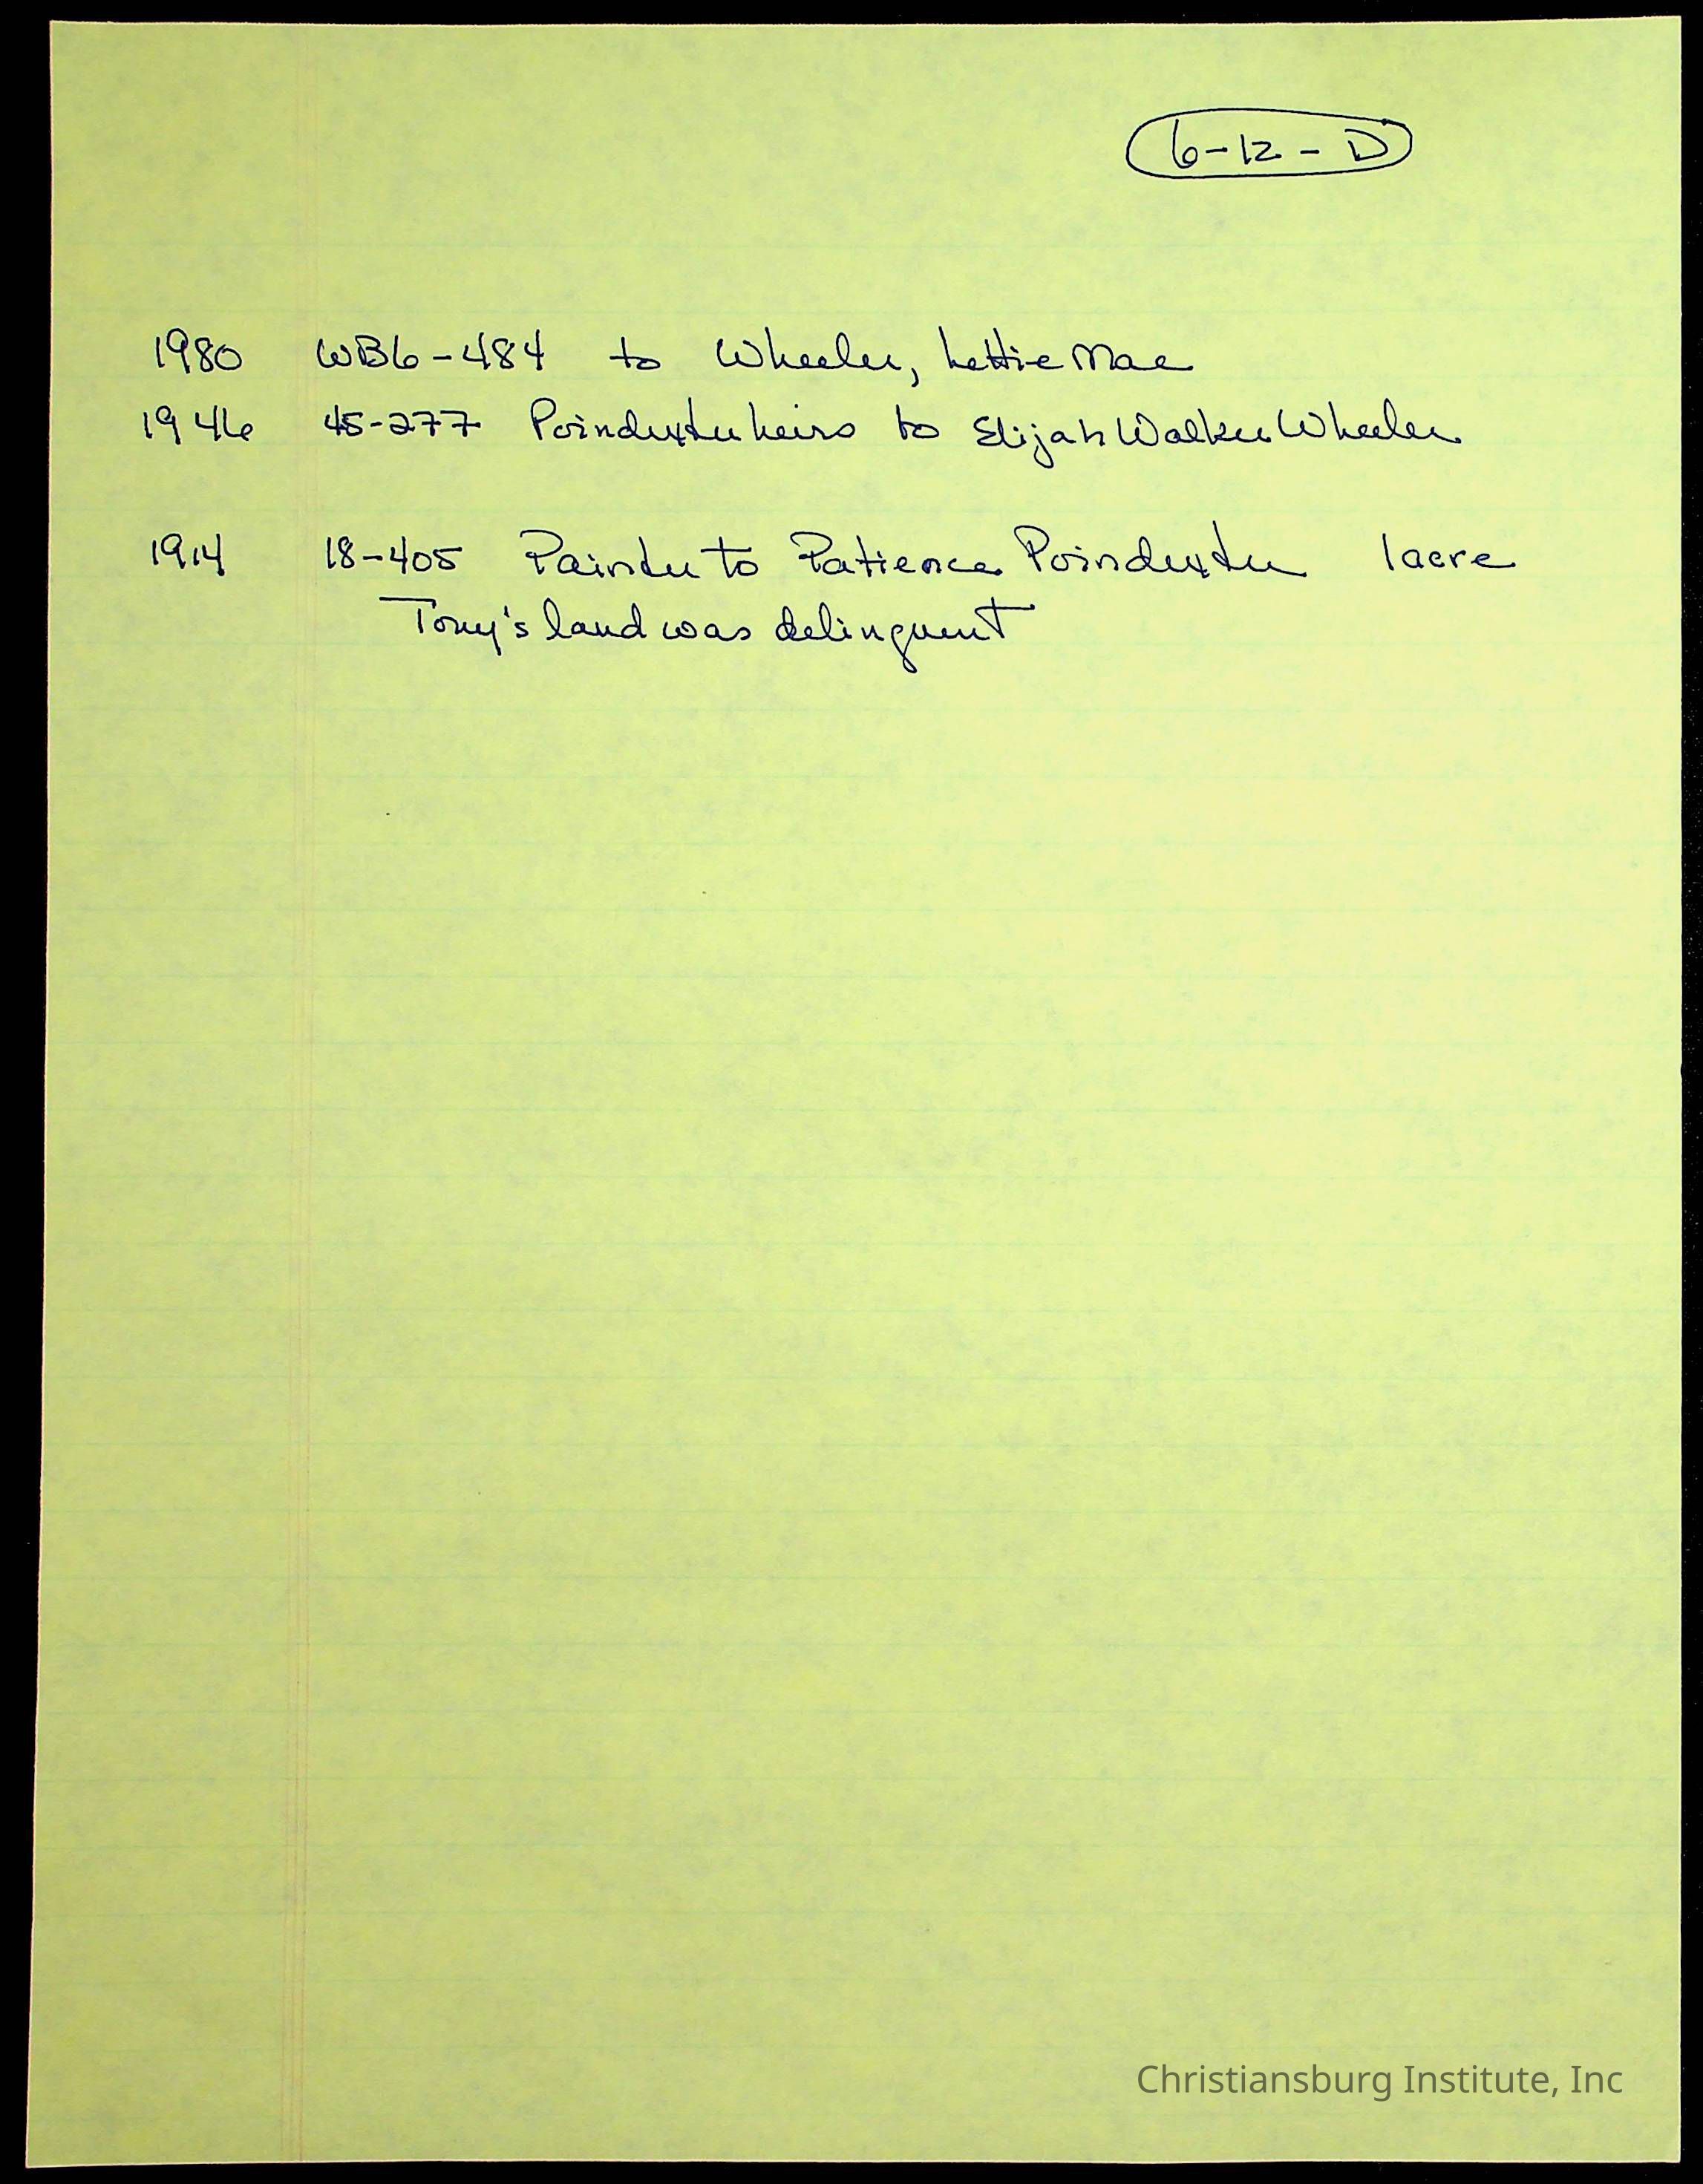 6-12-D
1980 WB6-484 to Wheeler, Lettie Mae
1946 45-277 Poindexter heirs to Elijah Walker Wheeler
1914 18-405 Painter to Patience Poindexter 1 acre
Tony's land was delinquent
Christiansburg Institute, Inc